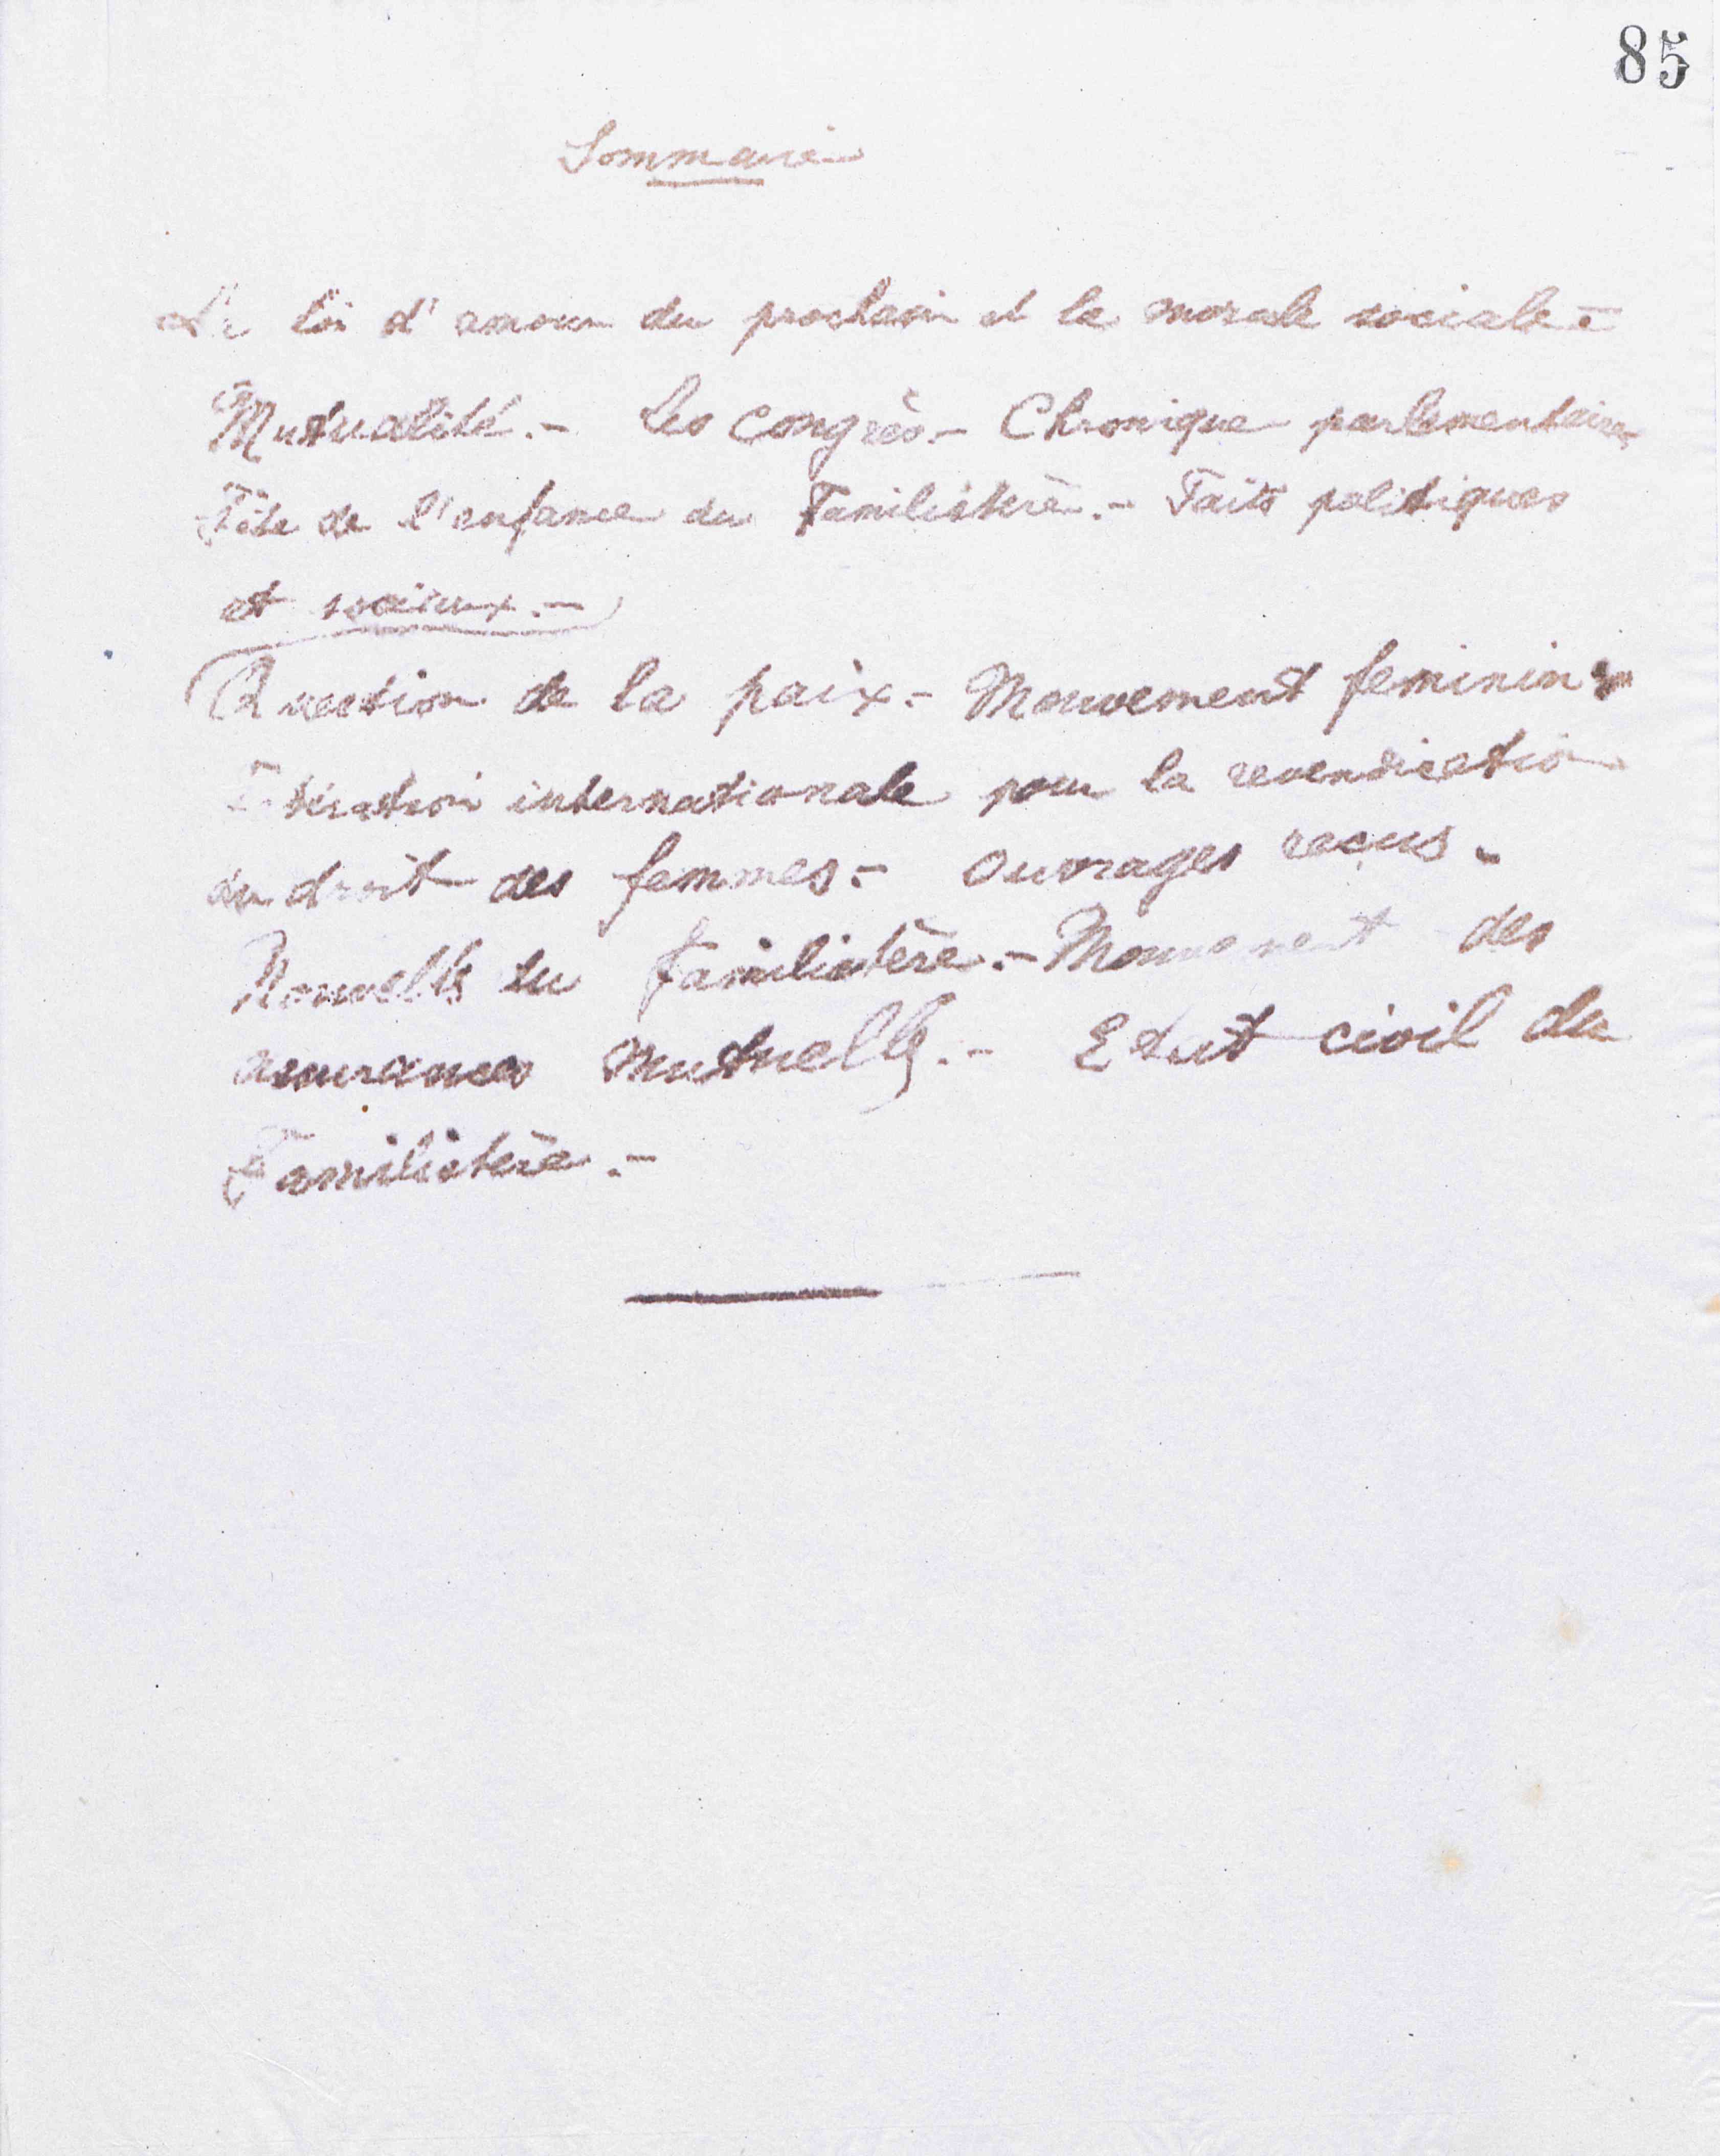 85
Sommaire
La loi d'amour du prochain et la morale sociale.-
Mutualité.- Les Congrès.- Chronique parlementaire
Fête de l'enfance du Familistère.- Faits politiques
et sociaux.-
Question de la paix.- Mouvement feminin.-
internationale pour la revendication
du droit des femmes.- Ouvrages reçus.-
Nouvelles du Familistère.- Mouvement des
assurances mutuelles.- Etat civil du
Familistère.-